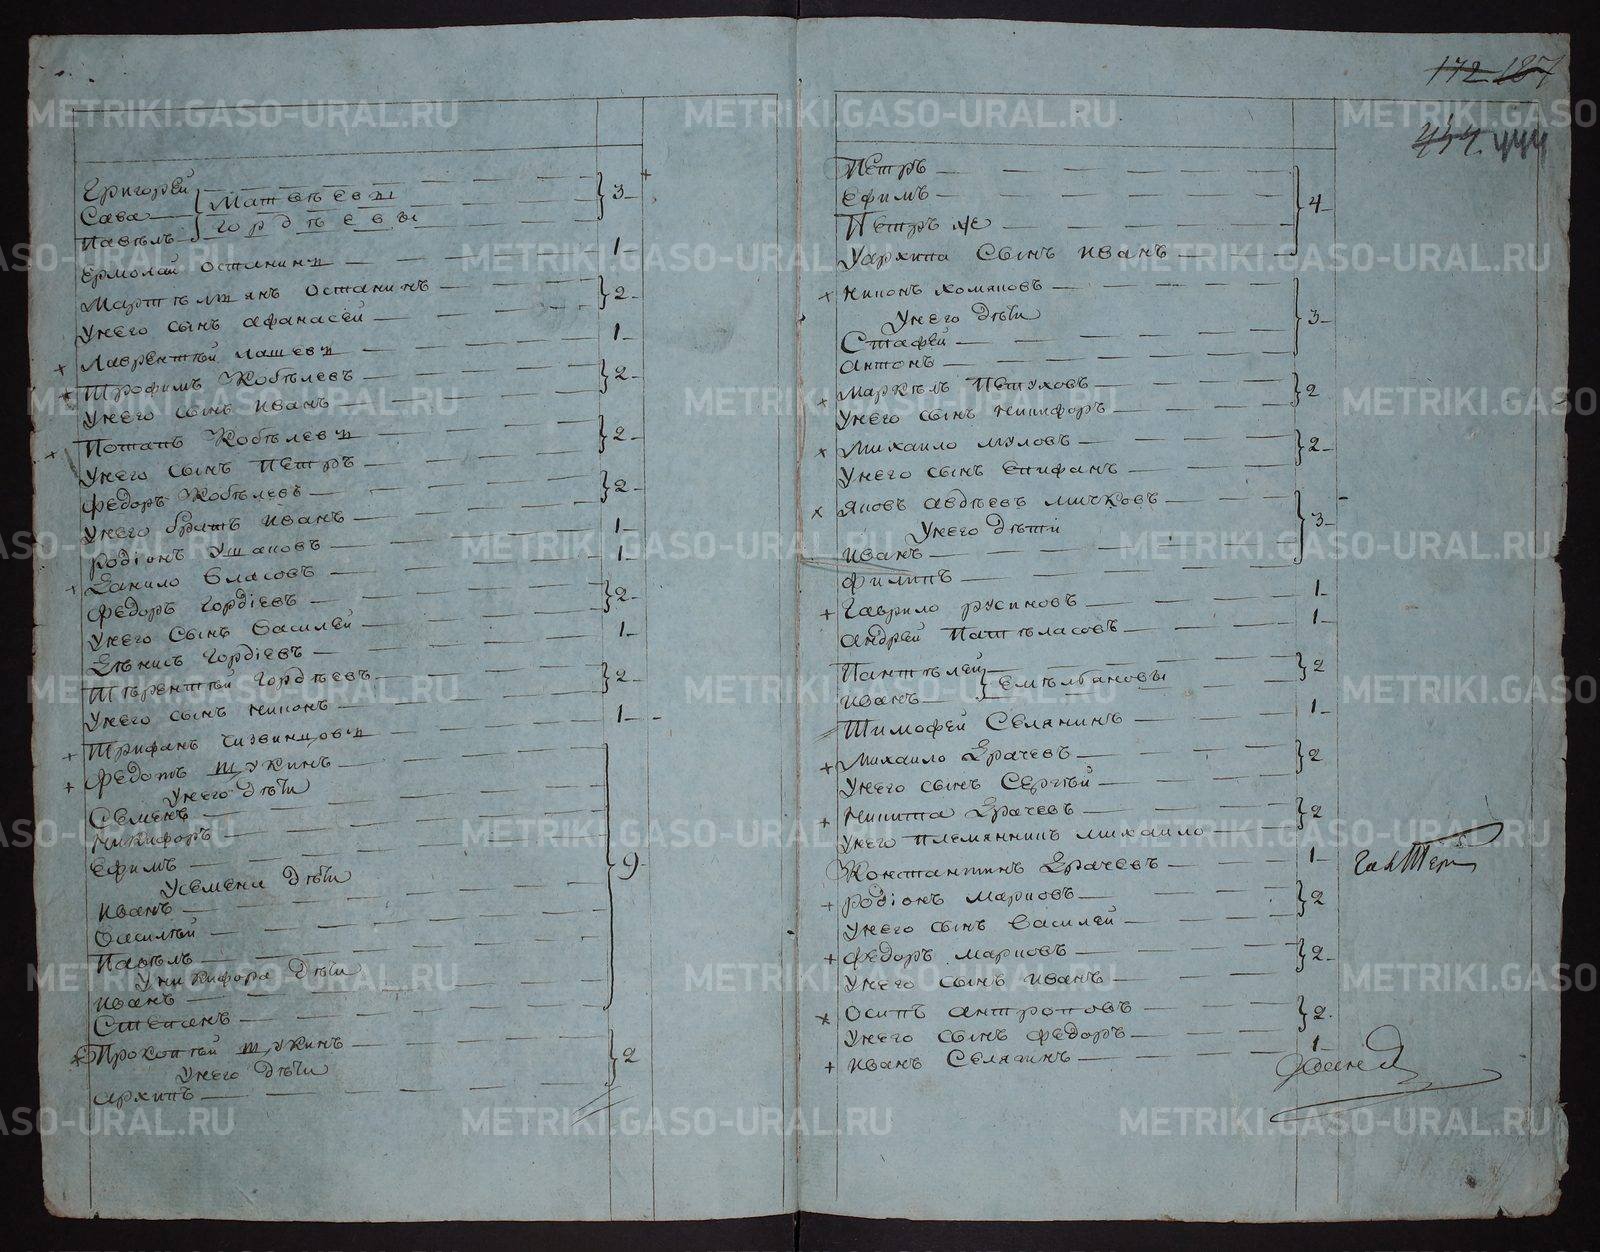 172 187
444
Григорей
Сава Матвѣевы 3
Павелъ гордѣевы
Ермолай Останинъ 1
Мартемьянъ Останинъ 2
Унего сынъ афанасей
Лаврентей лашевъ 1
Трофимъ Кобѣлевъ 2
Унего сынъ иванъ
Потапъ Кобѣлевъ 2
Унего сынъ Петръ
Федоръ Кобѣлевъ 2
Унего братъ иванъ
родіонъ Ушаковъ 1
Данило власовъ 1
Федоръ гордіевъ 2
Унего сынъ василей
Денисъ гордіевъ 1
Терентей гордѣевъ 2
Унего сынъ никонъ
Трифанъ 1
Федотъ щукинъ 9
Унего дѣти
Семенъ
Никифоръ
Ефимъ
Усемена дѣти
иванъ
василей
Павелъ
Уникифора дѣти
иванъ
Степанъ
Прокопей щукинъ 2
Унего дѣти
архипъ
Петръ
Ефимъ 4
Петръ же
Уархипа сынъ иванъ
никонъ хомяковъ
Унего дѣти 3
Стафей
антонъ
маркелъ Петуховъ 2
Унего сынъ никифоръ
михаило муловъ 2
Унего сынъ епифанъ
яковъ авдѣевъ мичковъ
Унего дѣти 3
иванъ
филипъ
гаврило русиновъ 1
андрей 1
Пантелей
иванъ Емельяновы 2
Тимофей Селянинъ 1
михаило Драчевъ 2
Унего сынъ Сергей
никита Драчевъ 2
Унего племянникъ михаило
Константинъ Драчевъ 1
родіонъ марковъ 2
Унего сынъ василей
федоръ марковъ 2
Унего сынъ иванъ
Осипъ антроповъ 2
Унего сынъ федоръ
иванъ Селянинъ 1
METRIKI.GASO-URAL.RU